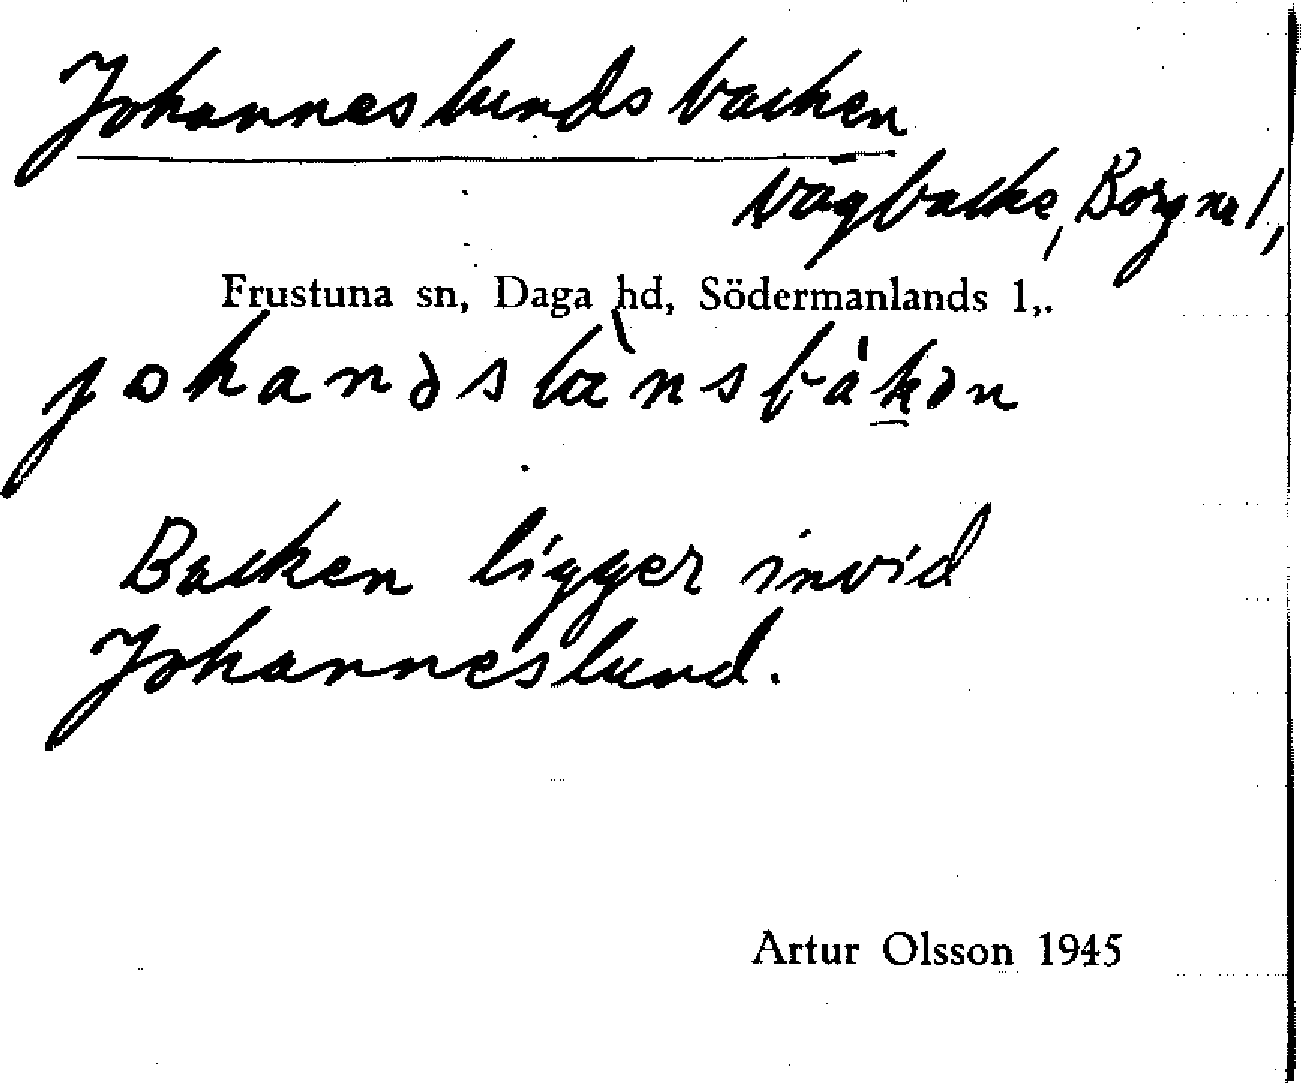 Johanneslundsbacken
Vägbacke, Borg nr 1,
Frustuna sn, Daga hd, Södermanlands l,.
Backen ligger invid
Johanneslund.
Artur Olsson 1945